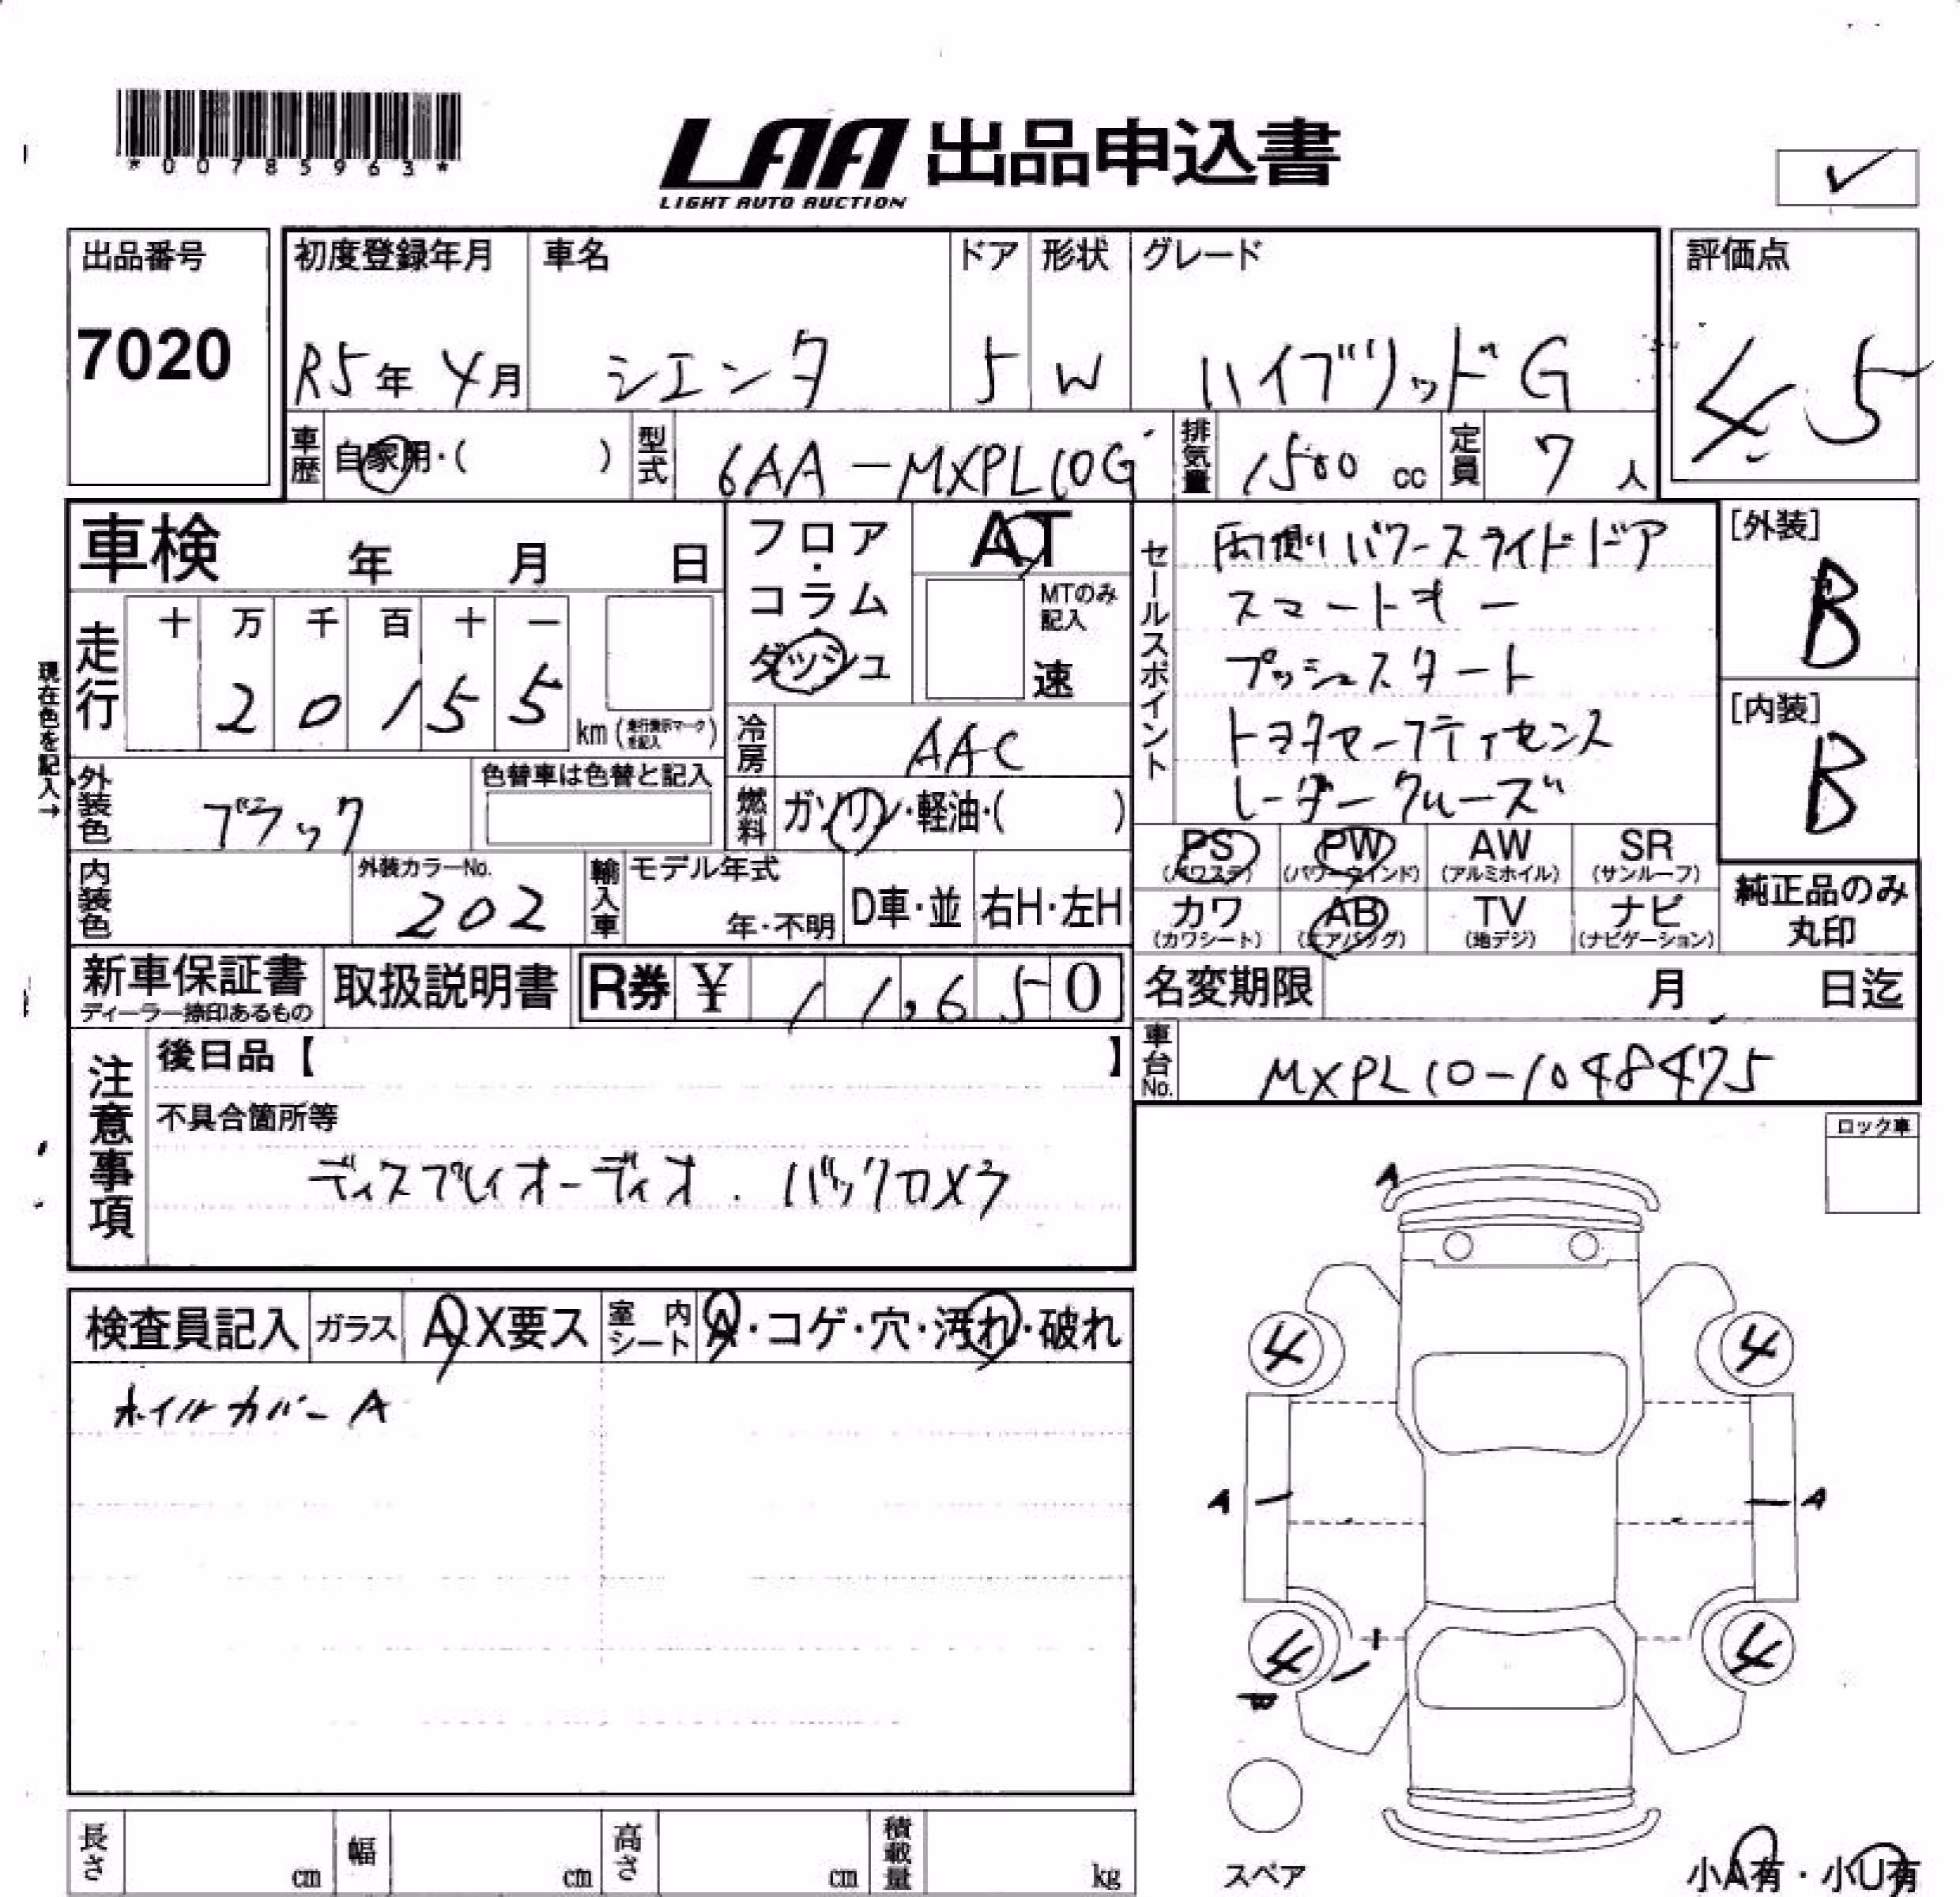 *00785963*
LAA 出品申込書
LIGHT AUTO AUCTION
✓
出品番号
7020
初度登録年月 車名 ドア 形状 グレード
R5年 4月 シエンタ 5 W ハイブリッドG
評価点
4.5
車歴 自家用・( ) 型式 6AA-MXPL10G 排気量 1500 cc 定員 7 人
車検 年 月 日
フロア・コラム・ダッシュ
AT
MTのみ記入
速
走行 十 万 千 百 十 一
2 0 1 5 5 km (走行表示マークを記入)
現在色を記入→
冷房 AAC
外装色 ブラック
色替車は色替と記入
燃料 ガソリン・軽油・( )
内装色
外装カラーNo.
202
輸入車 モデル年式
年・不明 D車・並 右H・左H
セールスポイント
両側パワースライドドア
スマートキー
プッシュスタート
トヨタセーフティセンス
レーダークルーズ
[外装]
B
[内装]
B
PS PW AW SR
(パワステ) (パワーウインド) (アルミホイル) (サンルーフ)
カワ AB TV ナビ
(カワシート) (エアバッグ) (地デジ) (ナビゲーション)
純正品のみ
丸印
新車保証書
ディーラー捺印あるもの
取扱説明書
R券 ¥ 11,650
名変期限 月 日迄
車台No. MXPL10-1048475
注意事項
後日品【 】
不具合箇所等
ディスプレイオーディオ. バックカメラ
ロック車
検査員記入 ガラス A X要ス 室内シート A・コゲ・穴・汚れ・破れ
ホイルカバーA
A
4 4
A A
4 4
スペア
小A有・小U有
長さ cm 幅 cm 高さ cm 積載量 kg